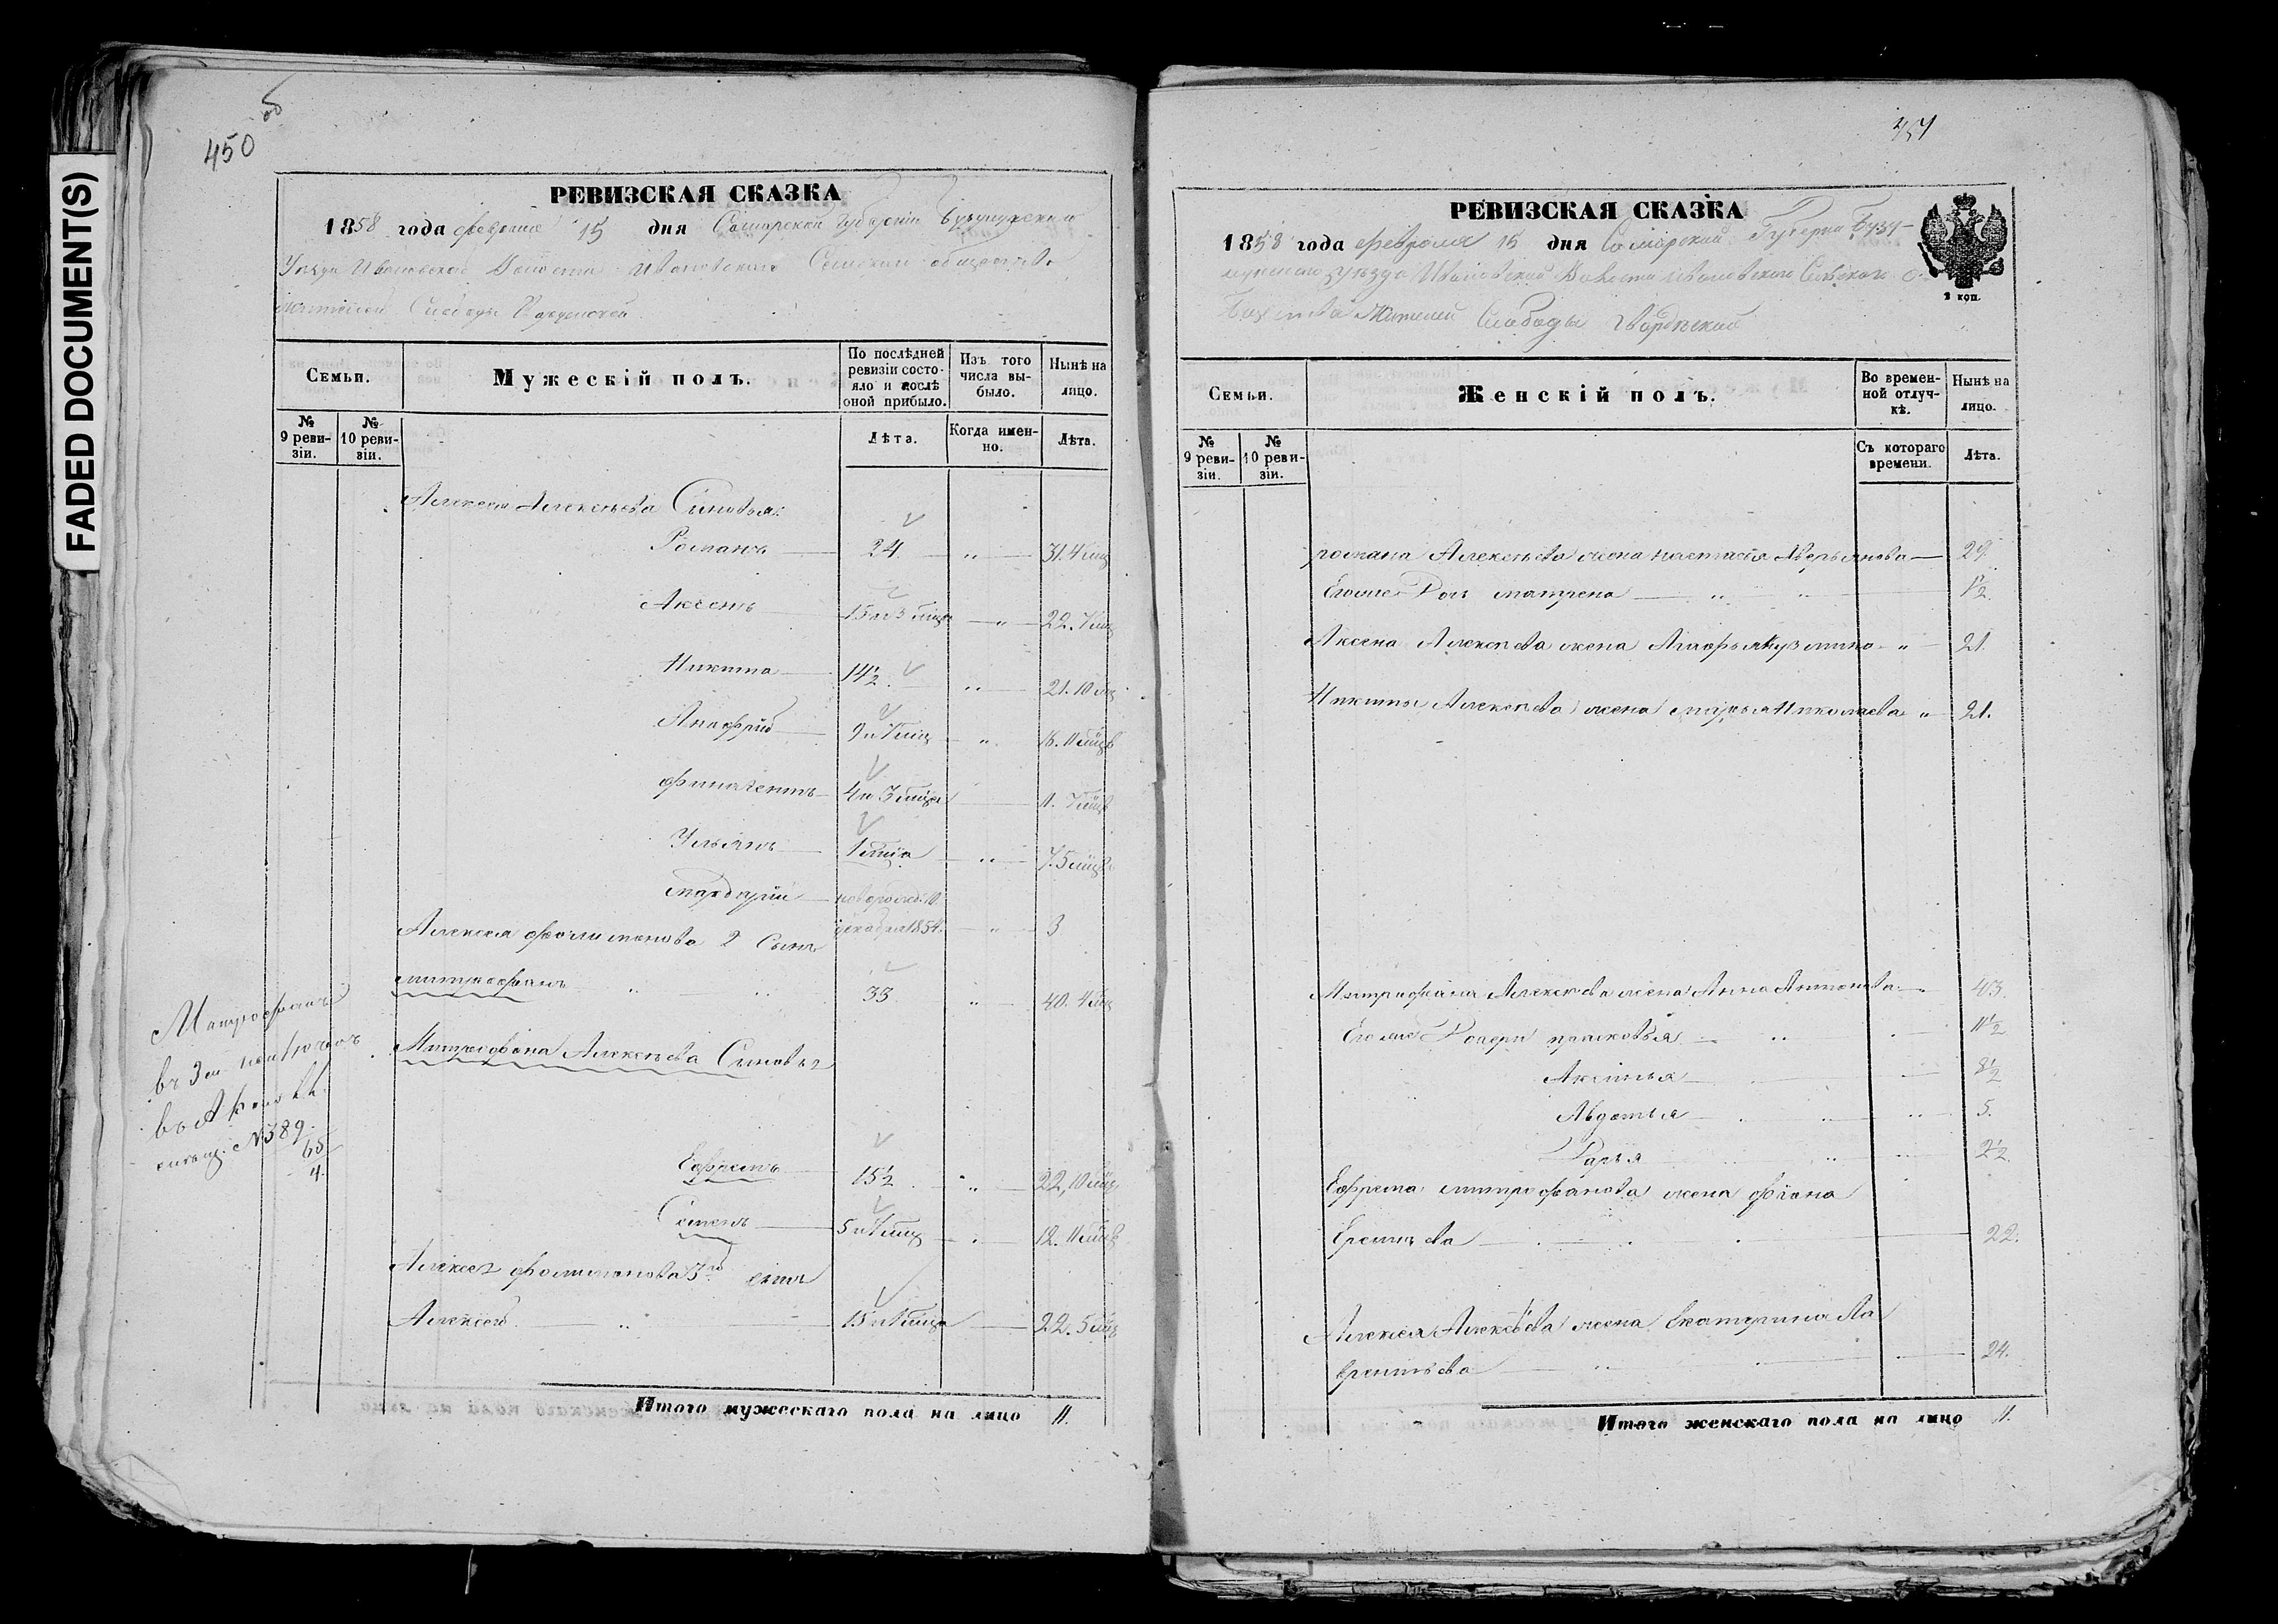 FADED DOCUMENT(S)
450 об
РЕВИЗСКАЯ СКАЗКА
1858 года февраля 15 дня Самарской Губерніи Бузулукскаго
Уезда Ивановской Волости Ивановскаго Сельскаго общества
жителей Слободы Гвардейской
Семьи.
Мужескій полъ.
По послѣдней ревизіи состояло и послѣ оной прибыло.
Изъ того числа выбыло.
Нынѣ на лицо.
№ 9 ревизіи.
№ 10 ревизіи.
Лѣта.
Когда именно.
Лѣта.
Алексея Алексеева Синовья:
Романъ 24 „ 31. 4 мц
Аксенъ 15 и 3 мца „ 22. 7 мц
Никита 14½ „ 21. 10 мц
Анофрій 9 и 7 мц „ 16. 11 мцв
4 и 3 мца 11. 7 мцв
Ульянъ 1 мца „ 7. 5 мцв
новорожд. 10
декабря 1854. „ 3
Алексея Филимонова 2 Сынъ
митрофанъ „ „ 33 „ 40. 4 мц
Митрофана Алексеева Сыновья
Митрофанъ
въ 3 м
№ 389
65
4.
Ефремъ 15½ „ 22, 10 мц
Семенъ 5 и 4 мц 12. 11 мцв
Алексея Филимонова 3й сынъ
Алексей „ 15 и 1 мца 22. 5 мц
Итого мужескаго пола на лицо 11.
451
РЕВИЗСКАЯ СКАЗКА
1858 года февраля 15 дня Самарской Губерни Бузу-
лукскаго уъзда Ивановской Волости Ивановскаго Сельскаго о-
бщества Жителей Слободы Гвардейской
2 коп.
Семьи.
Женскій полъ.
Во временной отлучкѣ.
Нынѣ на лицо.
№ 9 ревизіи.
№ 10 ревизіи.
Съ котораго времени.
Лѣта.
романа Алексеева жена настасія Аверьянова 29.
Егоже Доч матрена „ „ 1½.
Аксена Алексеева жена Агафья Кузмина „ 21.
Никиты Алексеева жена марья Николаева „ 21.
Митрофана Алексеева жена Анна Антонова 43.
Егоже Дочери прасковья „ 11½
Аксинья 8½
Авдотья „ 5.
Дарья „ 2½.
Ефрема митрофанова жена
Еремеева 22.
Алексея Алексеева жена Екатерина Ла
врентьева „ 24.
Итого женскаго пола на лицо 11.